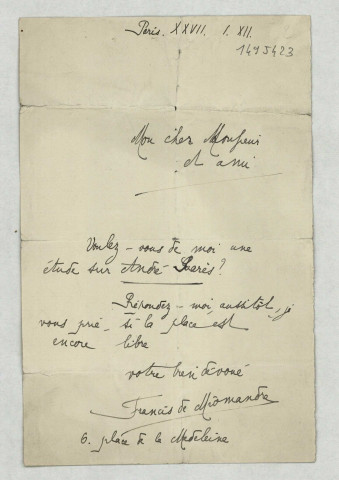 Paris. XXVII. I. XII.
1495423
Mon cher Monsieur
et ami
Voulez-vous de moi une
étude sur André Suarès?
Répondez-moi, aussitôt, je
vous prie, si la place est
encore libre
votre bien dévoué
Francis de Miomandre
6. place de la Madeleine